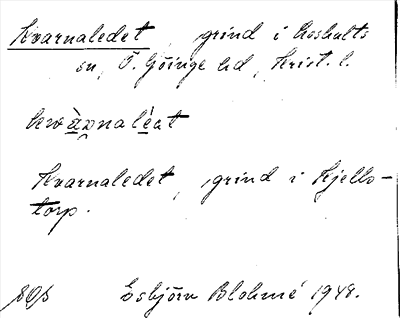 Kvarnaledet, grind i Loshults
sn, Ö. Göinge hd, Krist. l.
Kvarnaledet, grind i Kjells-
torp.
Esbjörn Blohmé 1948.